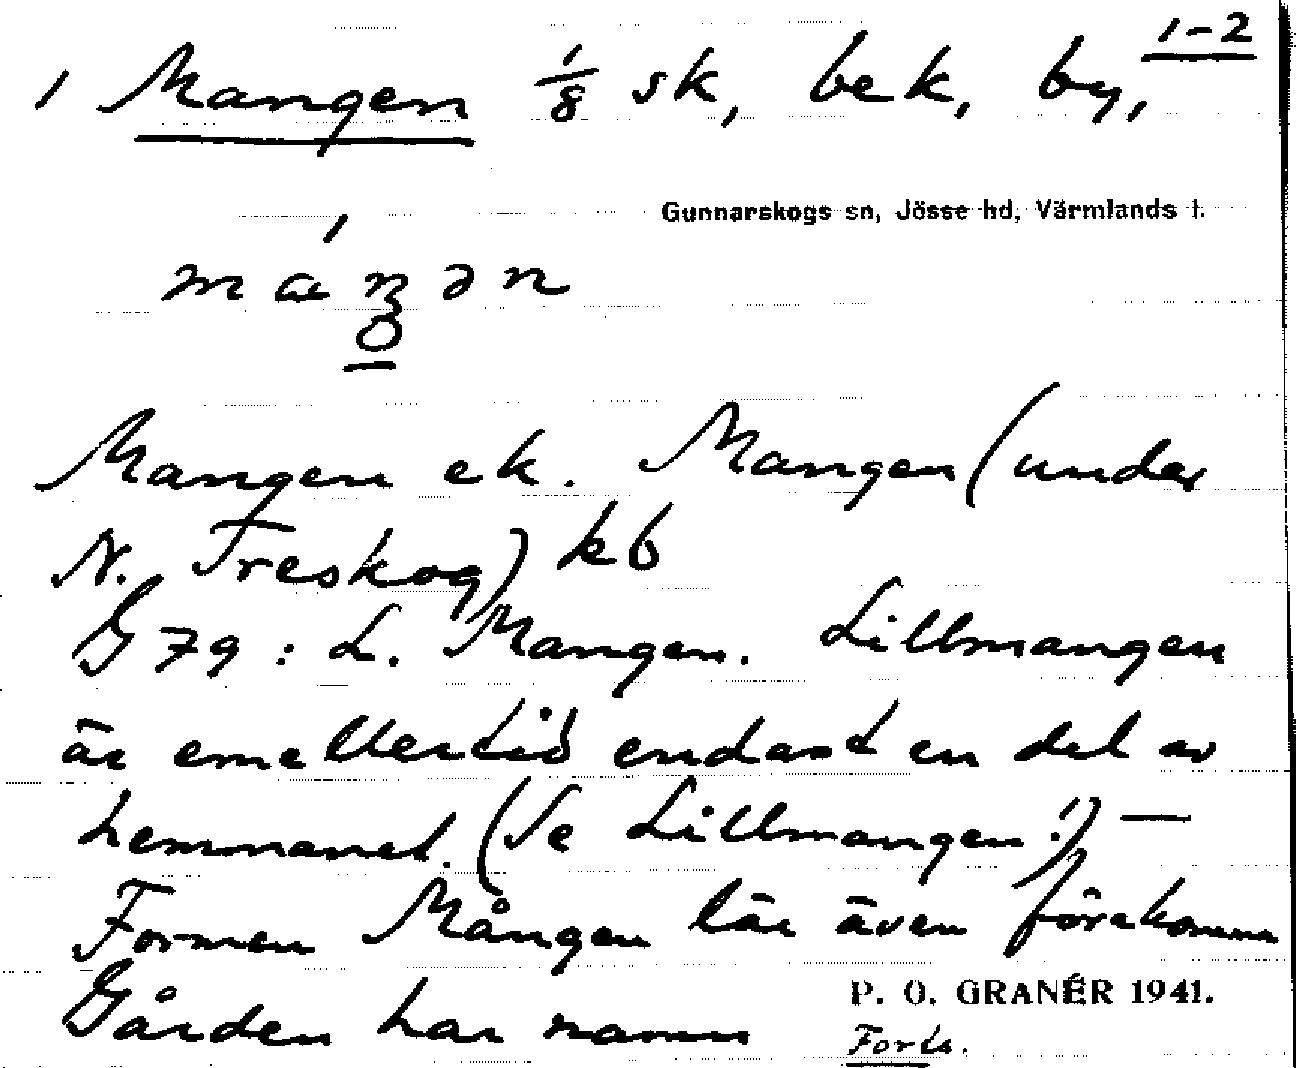 1-2
1 Mangen 1/8 sk, bek, by,
Gunnarskogs sn, Jösse hd, Värmlands l.
Mangen ek. Mangen (under
N. Treskog) kb
G 79 : L. Mangen. Lillmangen
är emellertid endast en del av
hemmanet. (Se Lillmangen!) —
Formen Mången lär även förekomma
Gården har namn
P. O. GRANÉR 1941.
Forts.